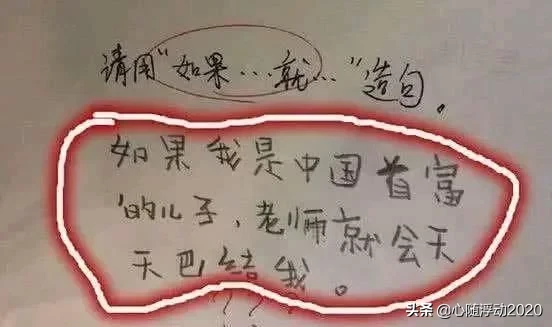 请用“如果…就…”造句。
如果我是中国首富
的儿子，老师就会天
天巴结我。
？？？
头条 @心随浮动2020